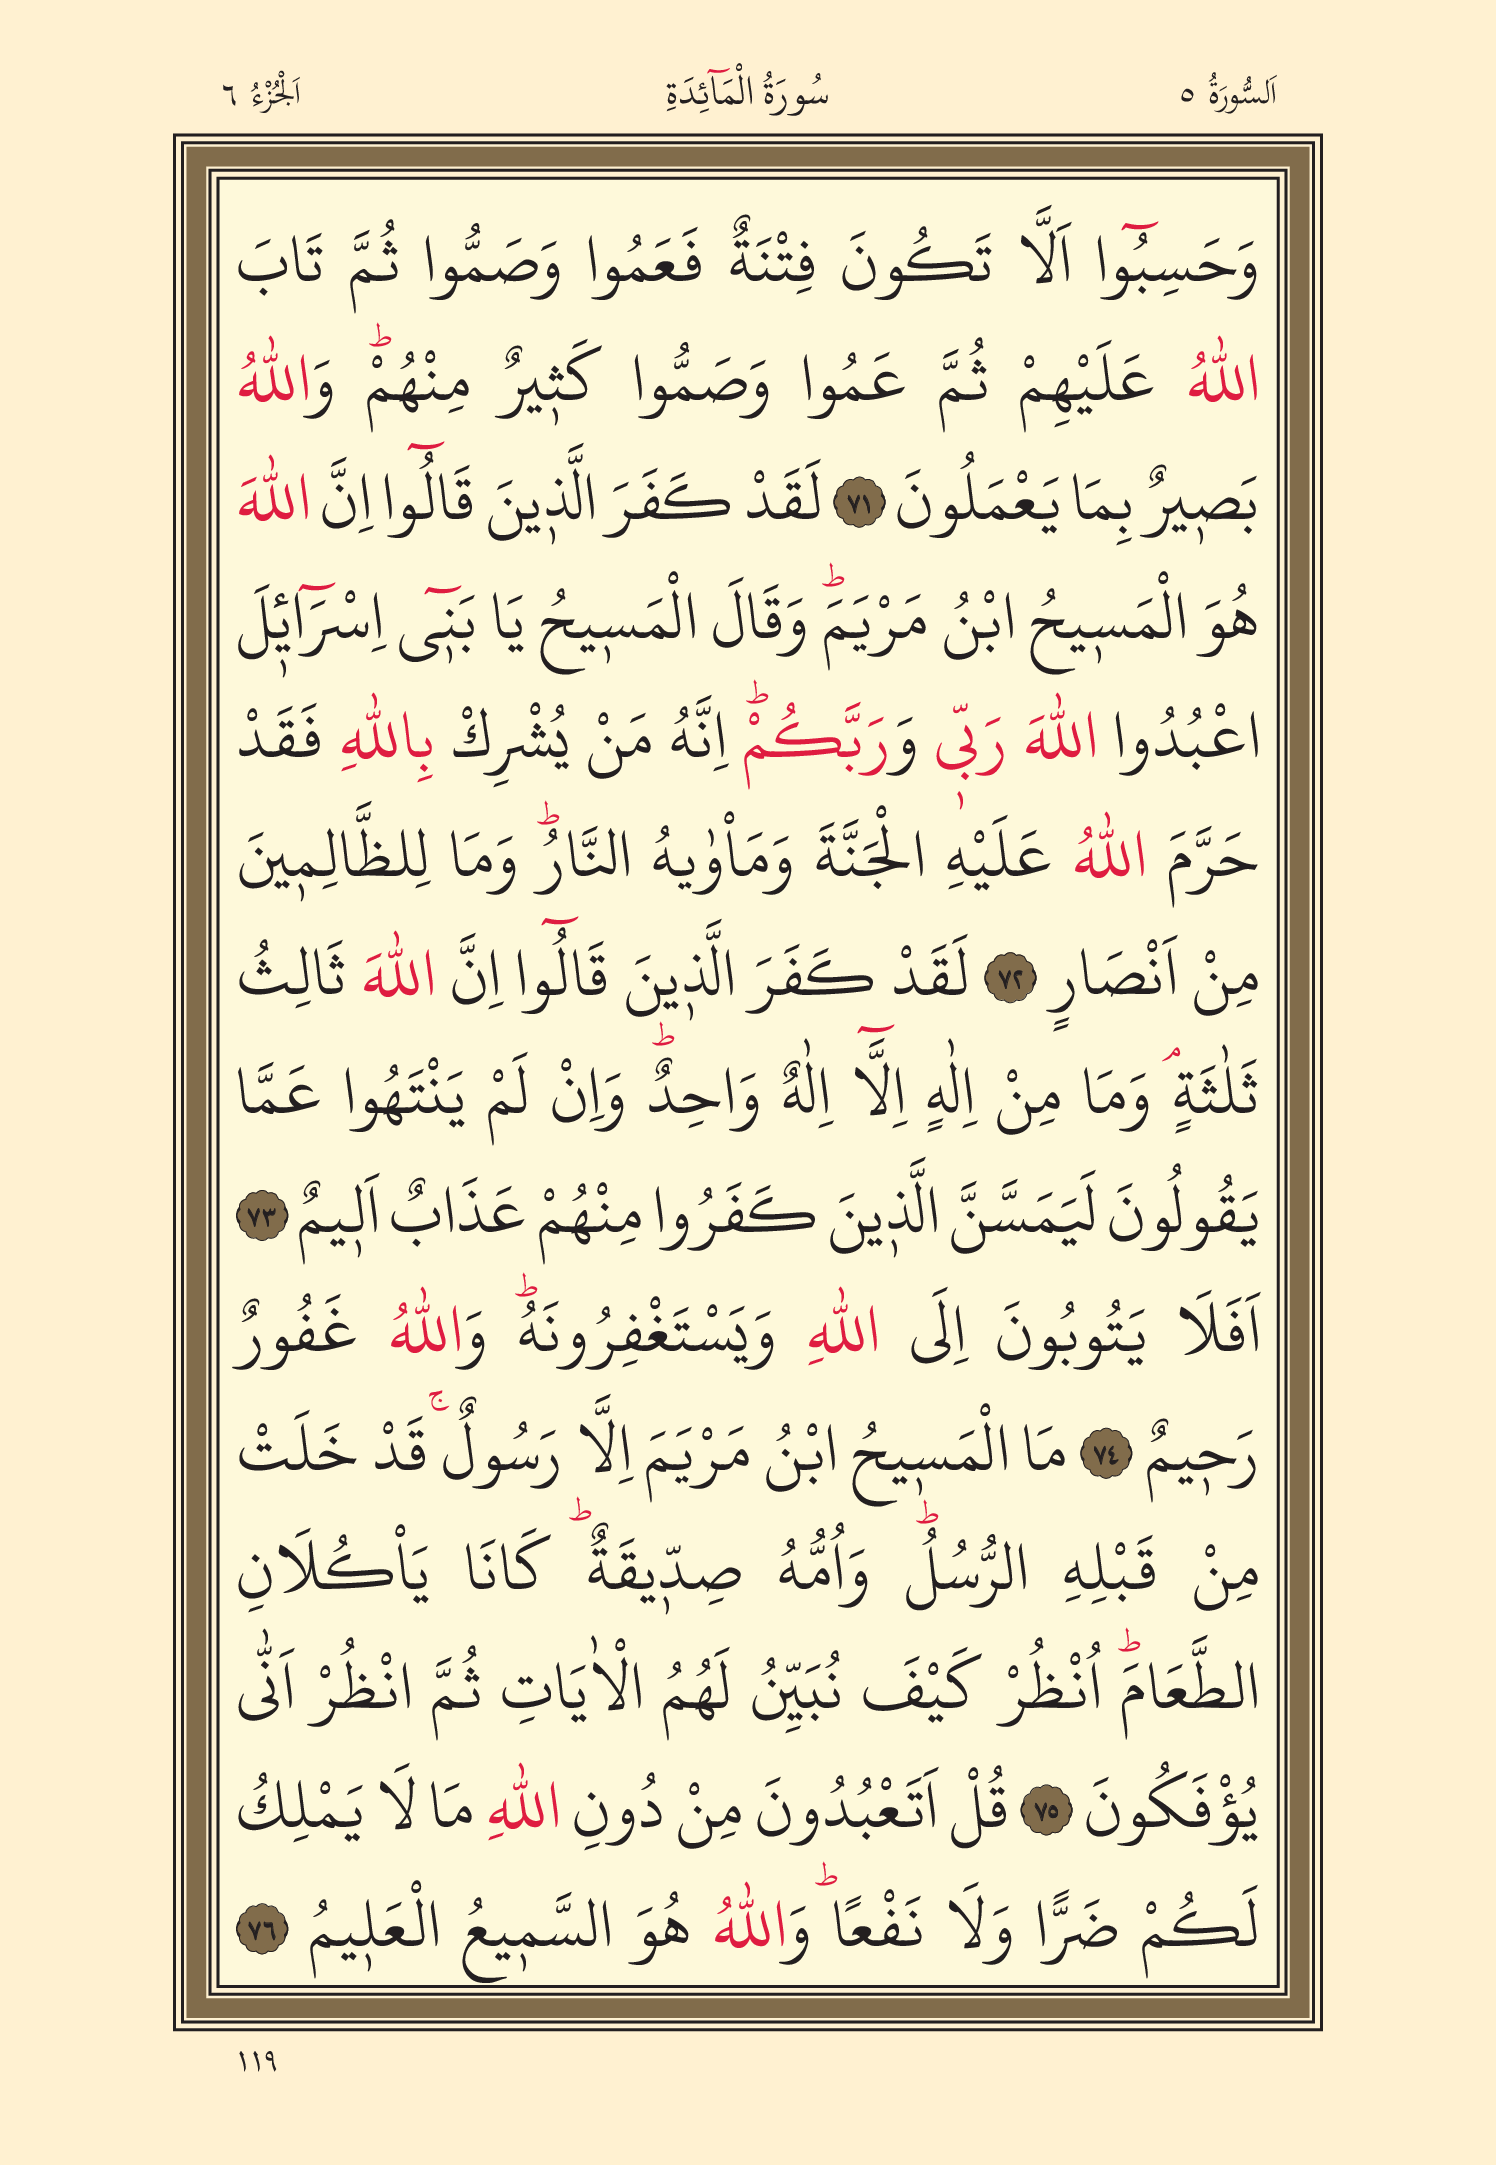 اَلسُّورَةُ ٥
سُورَةُ الْمَٓائِدَةِ
اَلْجُزْءُ ٦
وَحَسِبُٓوا اَلَّا تَكُونَ فِتْنَةٌ فَعَمُوا وَصَمُّوا ثُمَّ تَابَ
اللّٰهُ عَلَيْهِمْ ثُمَّ عَمُوا وَصَمُّوا كَث۪يرٌ مِنْهُمْۜ وَاللّٰهُ
بَص۪يرٌ بِمَا يَعْمَلُونَ ﴿٧١﴾ لَقَدْ كَفَرَ الَّذ۪ينَ قَالُٓوا اِنَّ اللّٰهَ
هُوَ الْمَس۪يحُ ابْنُ مَرْيَمَۜ وَقَالَ الْمَس۪يحُ يَا بَن۪ٓي اِسْرَٓائ۪لَ
اعْبُدُوا اللّٰهَ رَبّ۪ي وَرَبَّكُمْۜ اِنَّهُ مَنْ يُشْرِكْ بِاللّٰهِ فَقَدْ
حَرَّمَ اللّٰهُ عَلَيْهِ الْجَنَّةَ وَمَأْوٰيهُ النَّارُۜ وَمَا لِلظَّالِم۪ينَ
مِنْ اَنْصَارٍ ﴿٧٢﴾ لَقَدْ كَفَرَ الَّذ۪ينَ قَالُٓوا اِنَّ اللّٰهَ ثَالِثُ
ثَلٰثَةٍۢ وَمَا مِنْ اِلٰهٍ اِلَّٓا اِلٰهٌ وَاحِدٌۜ وَاِنْ لَمْ يَنْتَهُوا عَمَّا
يَقُولُونَ لَيَمَسَّنَّ الَّذ۪ينَ كَفَرُوا مِنْهُمْ عَذَابٌ اَل۪يمٌ ﴿٧٣﴾
اَفَلَا يَتُوبُونَ اِلَى اللّٰهِ وَيَسْتَغْفِرُونَهُۜ وَاللّٰهُ غَفُورٌ
رَح۪يمٌ ﴿٧٤﴾ مَا الْمَس۪يحُ ابْنُ مَرْيَمَ اِلَّا رَسُولٌۚ قَدْ خَلَتْ
مِنْ قَبْلِهِ الرُّسُلُۜ وَاُمُّهُ صِدّ۪يقَةٌۜ كَانَا يَأْكُلَانِ
الطَّعَامَۜ اُنْظُرْ كَيْفَ نُبَيِّنُ لَهُمُ الْاٰيَاتِ ثُمَّ انْظُرْ اَنّٰى
يُؤْفَكُونَ ﴿٧٥﴾ قُلْ اَتَعْبُدُونَ مِنْ دُونِ اللّٰهِ مَا لَا يَمْلِكُ
لَكُمْ ضَرًّا وَلَا نَفْعًاۜ وَاللّٰهُ هُوَ السَّم۪يعُ الْعَل۪يمُ ﴿٧٦﴾
١١٩